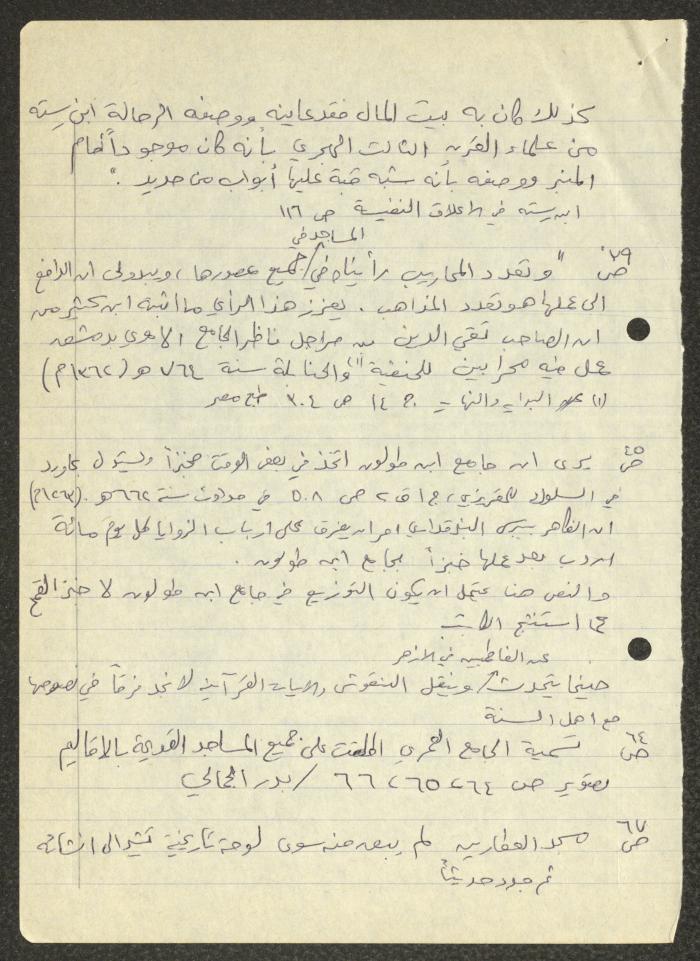 كذلك كان به بيت المال فقد عاينه ووصفه الرحالة ابن رسته
من علماء القرن الثالث الهجري بأنه كان موجوداً أمام
المنبر ووصفه بأنه شبه قبة عليها أبواب من حديد .
ابن رسته في الاعلاق النفيسة ص ١١٦
المساجد في
ص ٢٩ " وتعدد المحاريب رأيناه في / جميع عصورها ، ويبدو لي ان الدافع
الى عملها هو تعدد المذاهب . يعزز هذا الرأي ما اثبته ابن كثير من
ان الصاحب تقي الدين بن مراجل ناظر الجامع الاموي بدمشق
عمل فيه محرابين للحنفية والحنابلة سنة ٧٦٤ هـ (١٣٦٢م) "(١)
(١) البداية والنهاية ج ١٤ ص ٣٠٤ طبع مصر
ص ٤٥ يرى ان جامع ابن طولون اتخذ في بعض الوقت مخبزاً ويستدل بما ورد
في السلوك للمقريزي ، ج ١ ق ٢ ص ٥٠٨ في حوادث سنة ٦٦٢ هـ . (١٢٦٣م)
ان الظاهر بيبرس البندقداري امر ان يفرق على ارباب الزوايا كل يوم مائة
اردب بعد عملها خبزاً بجامع ابن طولون .
والنص هنا يحتمل ان يكون التوزيع في جامع ابن طولون لا خبز القمح
كما استنتج الكاتب
عن الفاطميين في الازهر
حينما يتحدث / وينقل النقوش والايات القرآنية لا نجد فرقاً في نصوصها
مع اهل السنة
ص ٦٤ تسمية الجامع العمري اطلقت على جميع المساجد القديمة بالاقاليم
تصوير ص ٦٤ ، ٦٥ ، ٦٦ / بدر الجمالي
ص ٦٧ مسجد العطارين لم يبق منه سوى لوحة تاريخية تشير الى انشائه
ثم جدد حديثاً